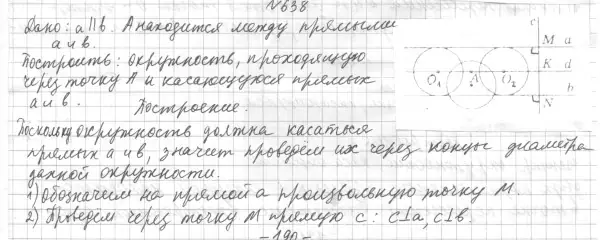 №638
Дано: a||b. А находится между прямыми
a и b.
Построить: окружность, проходящую
через точку А и касающуюся прямых
a и b.
Построение.
Поскольку окружность должна касаться
прямых a и b, значит проведём их через концы диаметра
данной окружности.
1) Обозначим на прямой a произвольную точку M.
2) Проведём через точку M прямую c: c⊥a, c⊥b.
-190-
c
M a
K d
b
N
O₁ A O₂